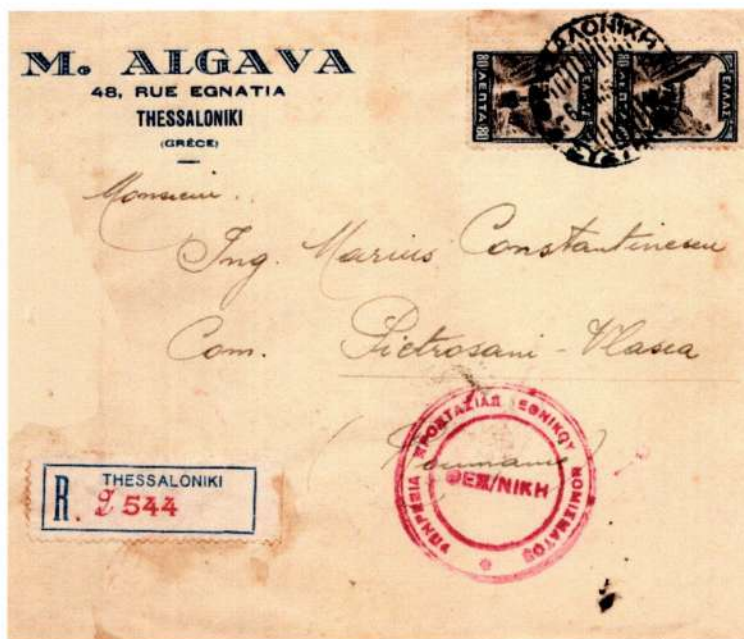 M. ALGAVA
48, RUE EGNATIA
THESSALONIKI
(GRÈCE)
80 ΛΕΠΤΑ 80
ΕΛΛΑΣ
80 ΛΕΠΤΑ
ΕΛΛΑΣ
Monsieur
Ing. Marius Constantinescu
Com. Pietrosani - Vlasca
(Roumanie)
ΥΠΗΡΕΣΙΑ ΠΡΟΣΤΑΣΙΑΣ ΕΘΝΙΚΟΥ ΝΟΜΙΣΜΑΤΟΣ
ΘΕΣ/ΝΙΚΗ
THESSALONIKI
R. 2 544